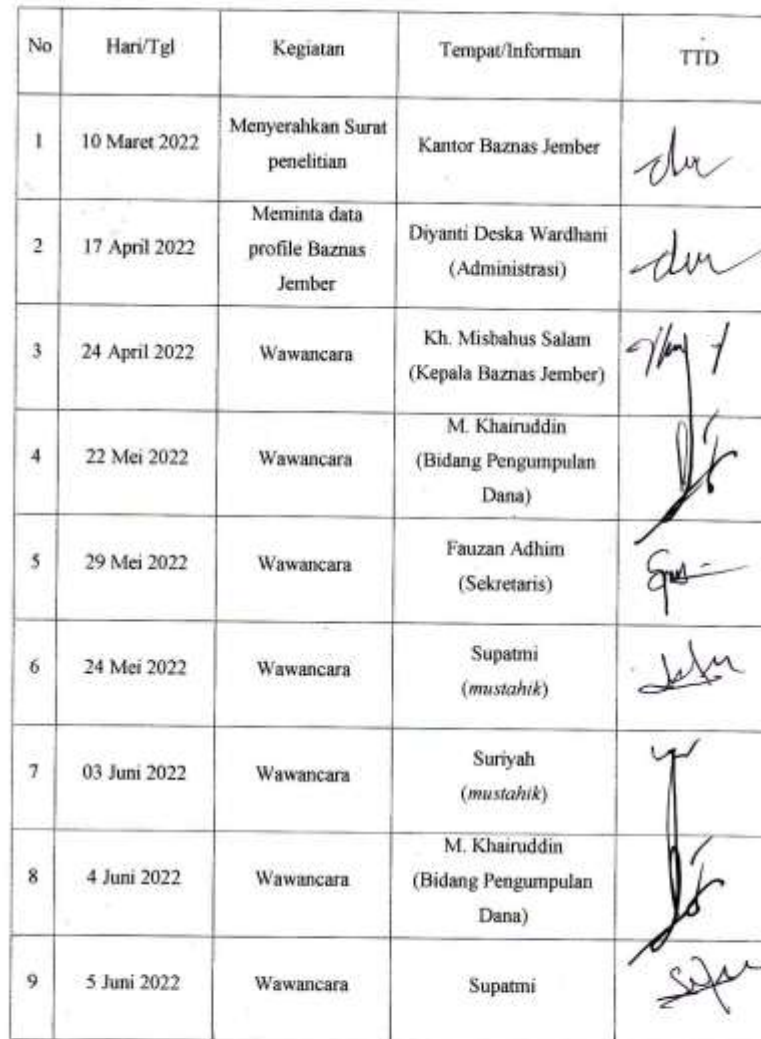 No Hari/Tgl Kegiatan Tempat/Informan TTD
1 10 Maret 2022 Menyerahkan Surat
penelitian Kantor Baznas Jember
2 17 April 2022 Meminta data
profile Baznas
Jember Diyanti Deska Wardhani
(Administrasi)
3 24 April 2022 Wawancara Kh. Misbahus Salam
(Kepala Baznas Jember)
4 22 Mei 2022 Wawancara M. Khairuddin
(Bidang Pengumpulan
Dana)
5 29 Mei 2022 Wawancara Fauzan Adhim
(Sekretaris)
6 24 Mei 2022 Wawancara Supatmi
(mustahik)
7 03 Juni 2022 Wawancara Suriyah
(mustahik)
8 4 Juni 2022 Wawancara M. Khairuddin
(Bidang Pengumpulan
Dana)
9 5 Juni 2022 Wawancara Supatmi